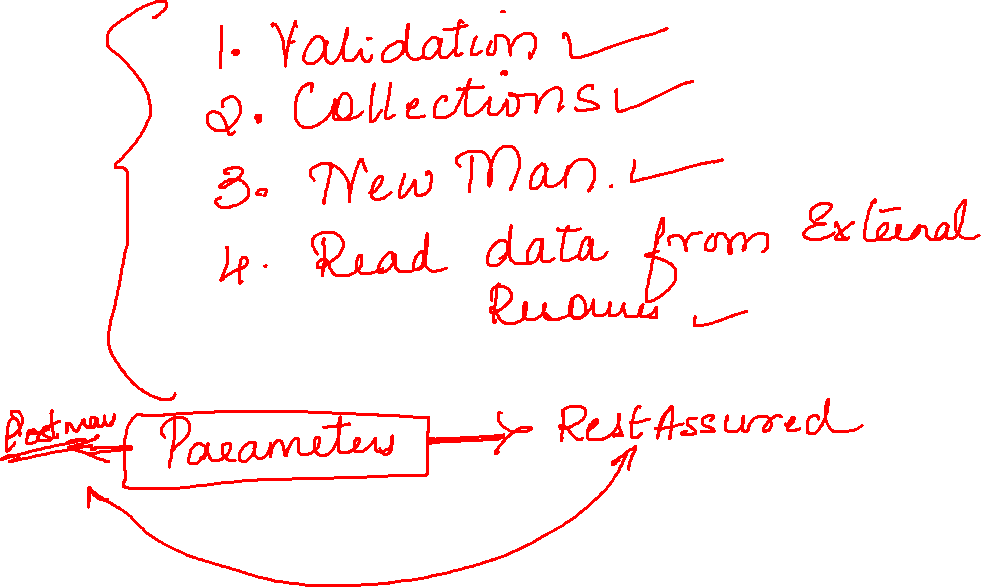 1. Validation
2. Collections
3. New Man.
4. Read data from External
Resources
Postman
Parameters
RestAssured